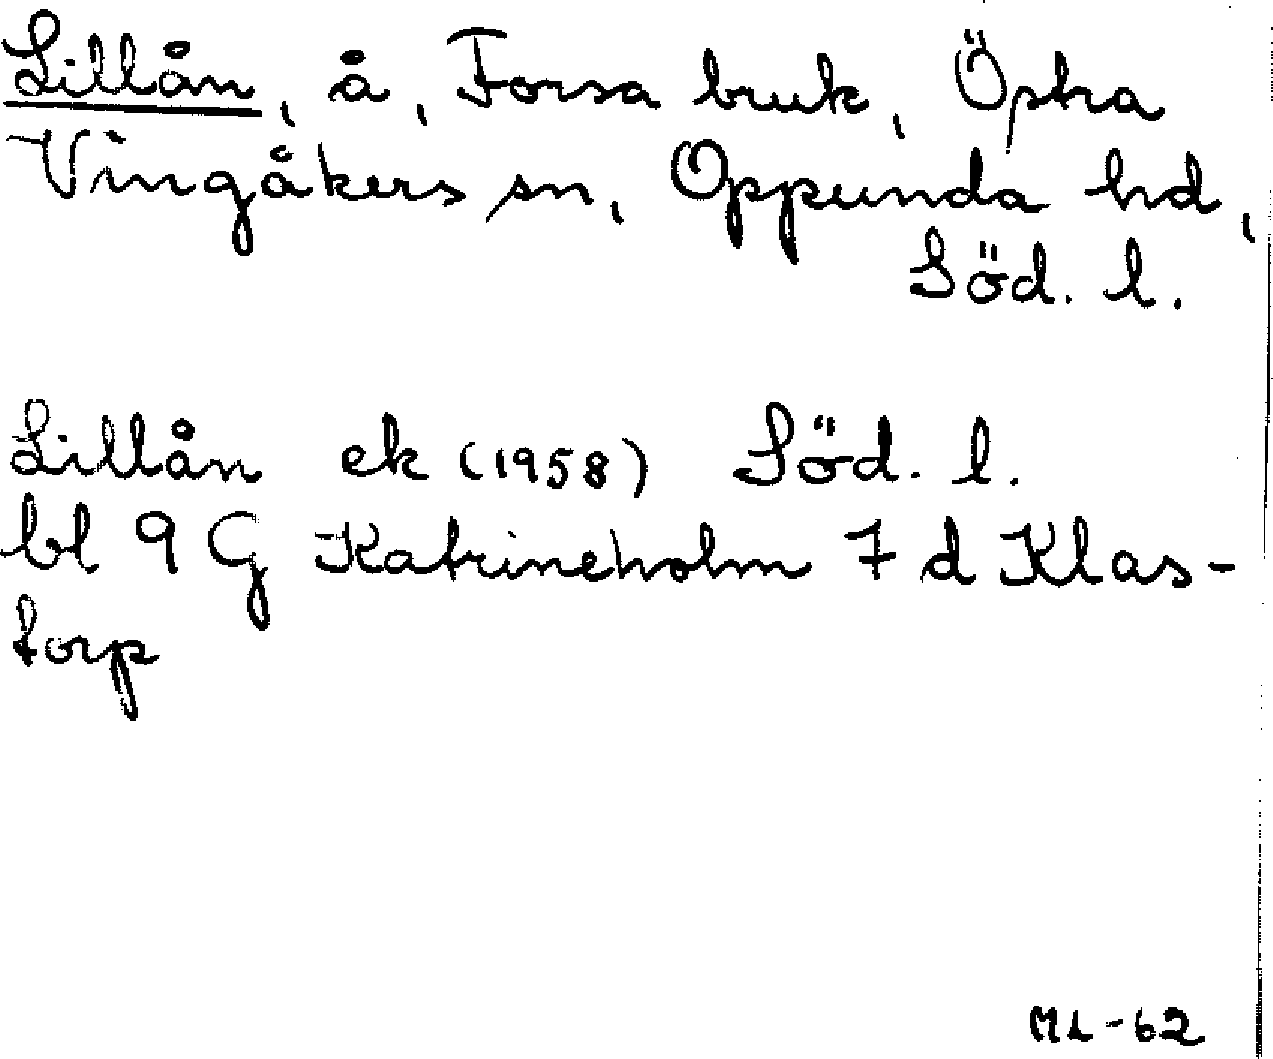 Lillån, å, Forsa bruk, Östra
Vingåkers sn, Oppunda hd,
Söd. l.
Lillån ek (1958) Söd. l.
bl 9 G Katrineholm 7 d Klas-
torp
ML-62